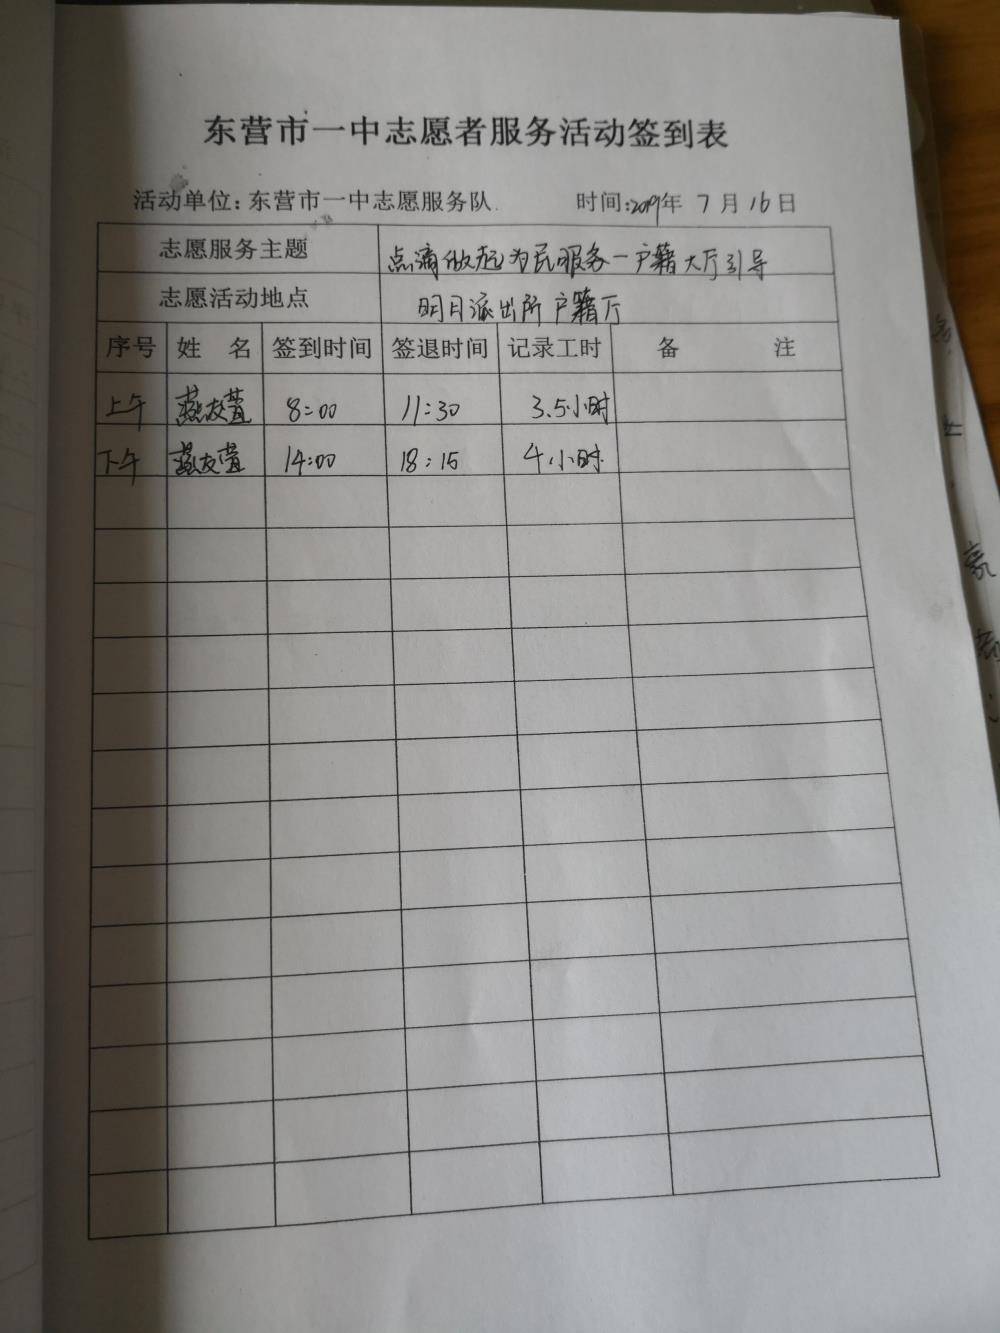 东营市一中志愿者服务活动签到表
活动单位:东营市一中志愿服务队 时间:2019年 7 月 16 日
志愿服务主题 点滴做起为民服务-户籍大厅引导
志愿活动地点 明月派出所户籍厅
序号 姓 名 签到时间 签退时间 记录工时 备 注
上午 燕友萱 8:00 11:30 3.5小时
下午 燕友萱 14:00 18:15 4小时